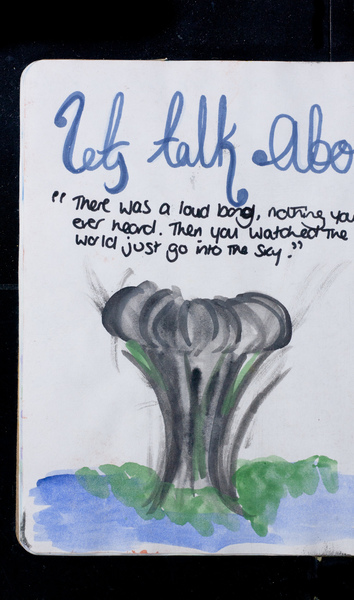 Lets talk Abo
" There was a loud bang, nothing you
ever heard. Then you watched the
world just go into the sky."